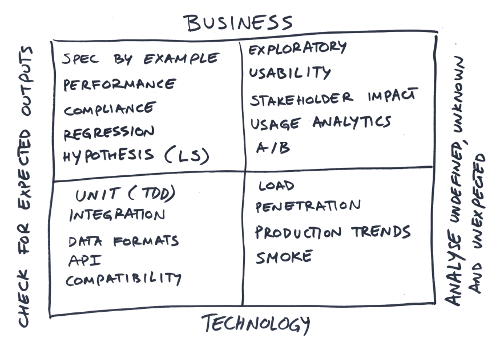 BUSINESS
CHECK FOR EXPECTED OUTPUTS
SPEC BY EXAMPLE
PERFORMANCE
COMPLIANCE
REGRESSION
HYPOTHESIS (LS)
EXPLORATORY
USABILITY
STAKEHOLDER IMPACT
USAGE ANALYTICS
A/B
UNIT (TDD)
INTEGRATION
DATA FORMATS
API
COMPATIBILITY
LOAD
PENETRATION
PRODUCTION TRENDS
SMOKE
ANALYSE UNDEFINED, UNKNOWN
AND UNEXPECTED
TECHNOLOGY